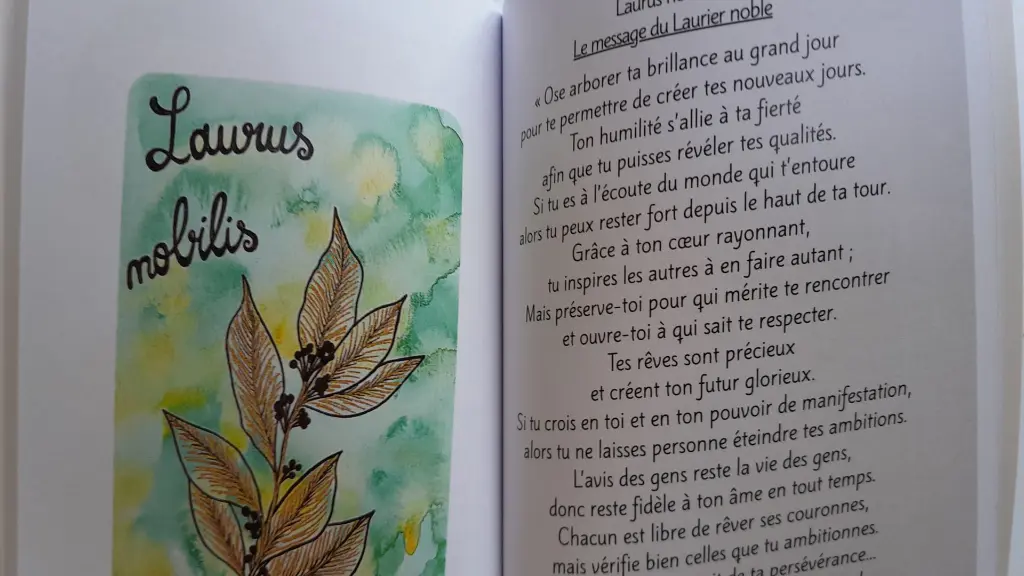 Laurus
nobilis
Laurus
Le message du Laurier noble
« Ose arborer ta brillance au grand jour
pour te permettre de créer tes nouveaux jours.
Ton humilité s'allie à ta fierté
afin que tu puisses révéler tes qualités.
Si tu es à l'écoute du monde qui t'entoure
alors tu peux rester fort depuis le haut de ta tour.
Grâce à ton cœur rayonnant,
tu inspires les autres à en faire autant ;
Mais préserve-toi pour qui mérite te rencontrer
et ouvre-toi à qui sait te respecter.
Tes rêves sont précieux
et créent ton futur glorieux.
Si tu crois en toi et en ton pouvoir de manifestation,
alors tu ne laisses personne éteindre tes ambitions.
L'avis des gens reste la vie des gens,
donc reste fidèle à ton âme en tout temps.
Chacun est libre de rêver ses couronnes,
mais vérifie bien celles que tu ambitionnes.
de ta persévérance...